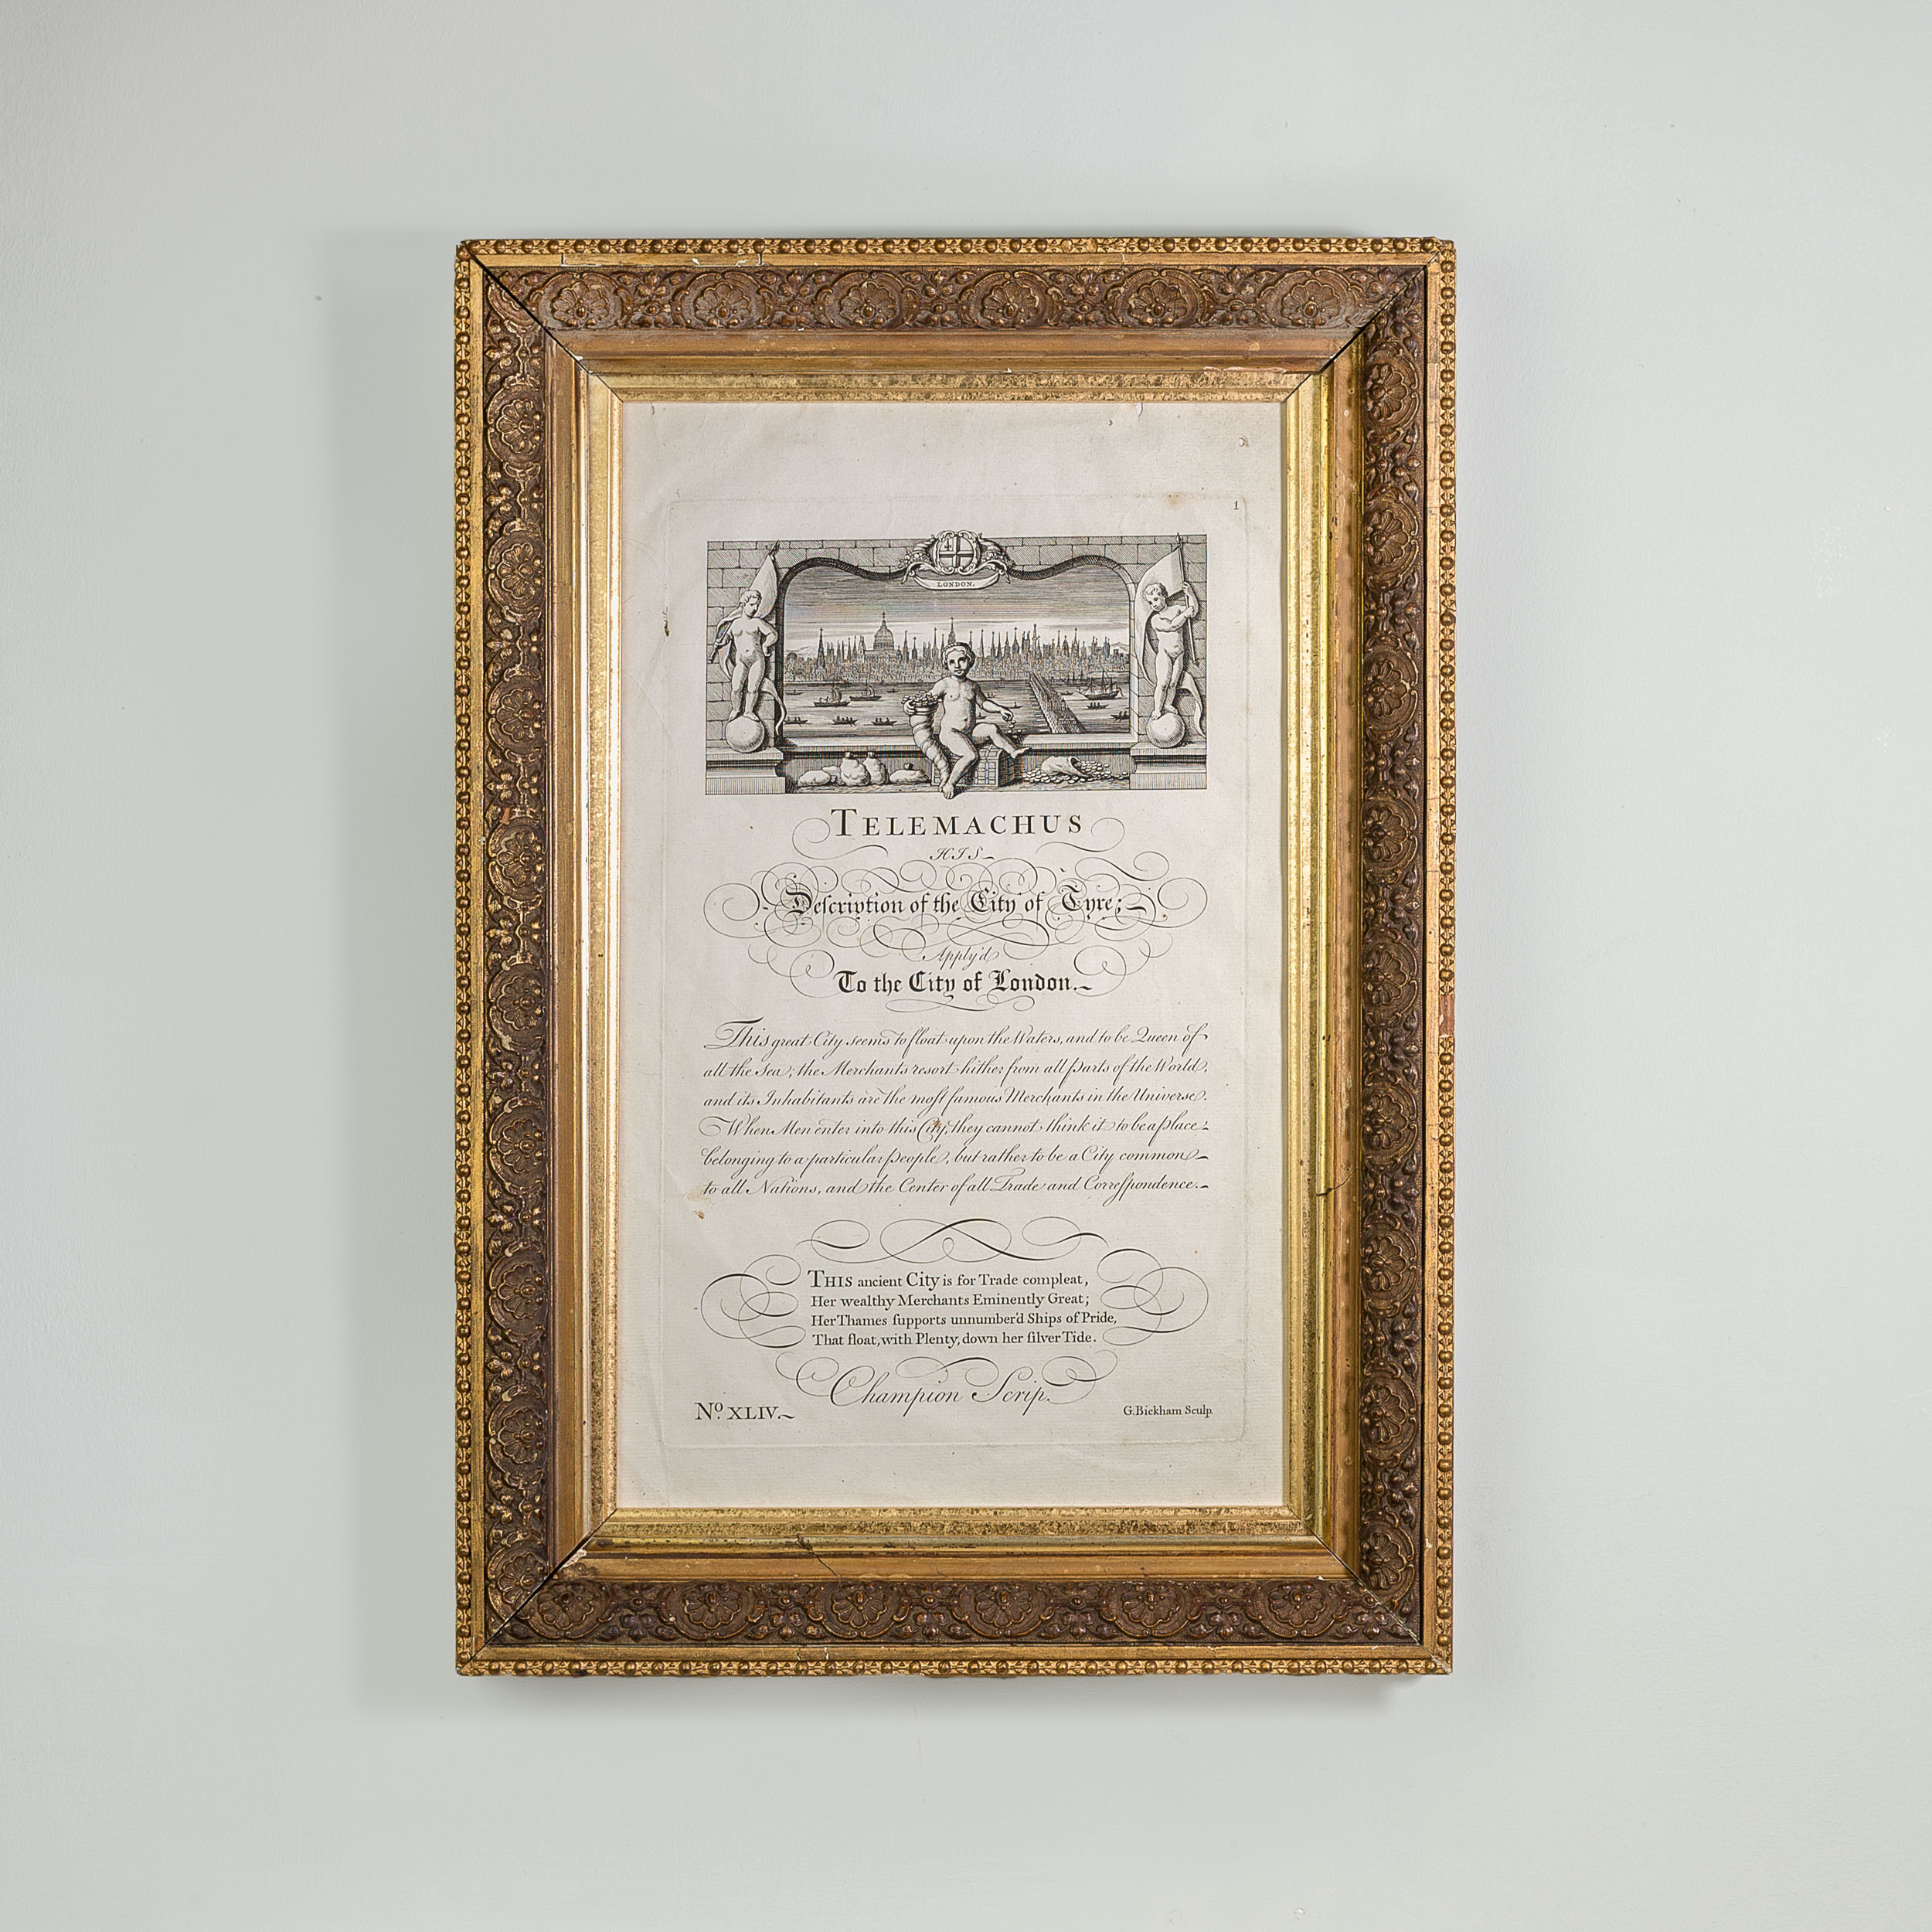 1
LONDON.
TELEMACHUS
HIS
Deſcription of the City of Tyre;
Apply'd
To the City of London.
This great City seems to float upon the Waters, and to be Queen of
all the Sea; the Merchants resort hither from all parts of the World,
and its Inhabitants are the moſt famous Merchants in the Universe.
When Men enter into this City, they cannot think it to be a place
belonging to a particular people, but rather to be a City common
to all Nations, and the Center of all Trade and Correſpondence.
THIS ancient City is for Trade compleat,
Her wealthy Merchants Eminently Great;
Her Thames ſupports unnumber'd Ships of Pride,
That float, with Plenty, down her ſilver Tide.
Champion Scrip.
Nº. XLIV.
G. Bickham Sculp.